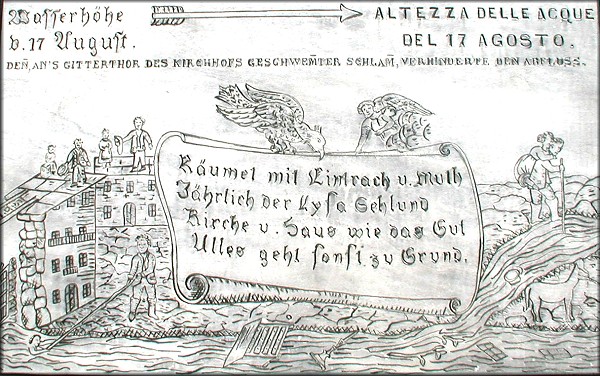 Wasserhöhe
v. 17 August.
ALTEZZA DELLE ACQUE
DEL 17 AGOSTO.
DEÑ, AN'S GITTERTHOR DES KIRCHHOFS GESCHWEM̃TER SCHLAM̃, VERHINDERTE DEN ABFLUSS.
Räumet mit Eintrach u. Muth
Jährlich der Lysa Schlund
Kirche u. Haus wie das Gut
Alles geht sonst zu Grund.